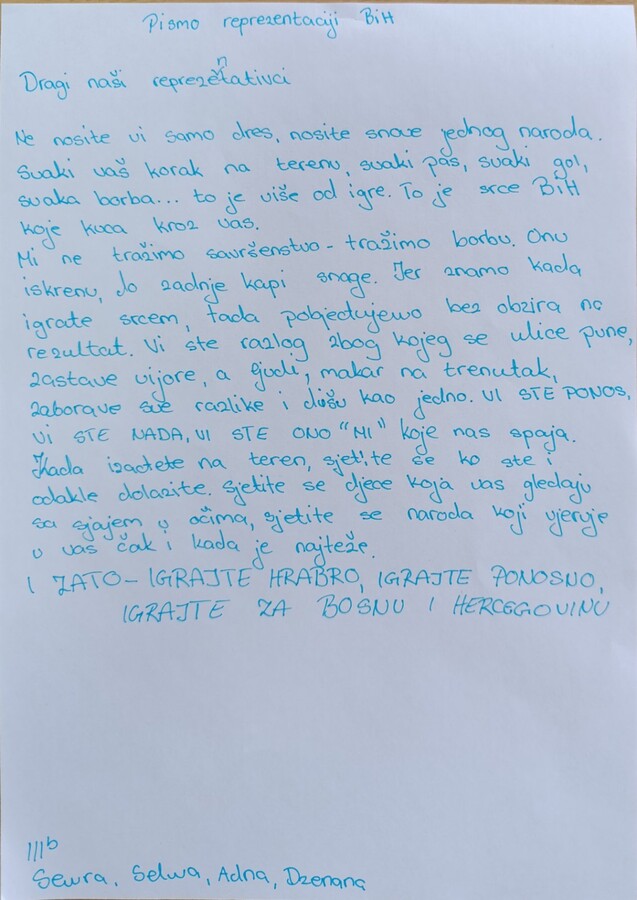 Pismo reprezentaciji BiH
Dragi naši reprezentativci
Ne nosite vi samo dres, nosite snove jednog naroda.
Svaki vaš korak na terenu, svaki pas, svaki gol,
svaka borba... to je više od igre. To je srce BiH
koje kuca kroz vas.
Mi ne tražimo savršenstvo - tražimo borbu. Onu
iskrenu, do zadnje kapi snage. Jer znamo kada
igrate srcem, tada pobjeđujemo bez obzira na
rezultat. Vi ste razlog zbog kojeg se ulice pune,
zastave vijore, a ljudi, makar na trenutak,
zaborave sve razlike i dišu kao jedno. VI STE PONOS,
VI STE NADA, VI STE ONO "MI" koje nas spaja.
Kada izađete na teren, sjetite se ko ste i
odakle dolazite. Sjetite se djece koja vas gledaju
sa sjajem u očima, sjetite se naroda koji vjeruje
u vas čak i kada je najteže.
I ZATO - IGRAJTE HRABRO, IGRAJTE PONOSNO,
IGRAJTE ZA BOSNU I HERCEGOVINU
IIIb
Sewra, Selwa, Adna, Dzenana